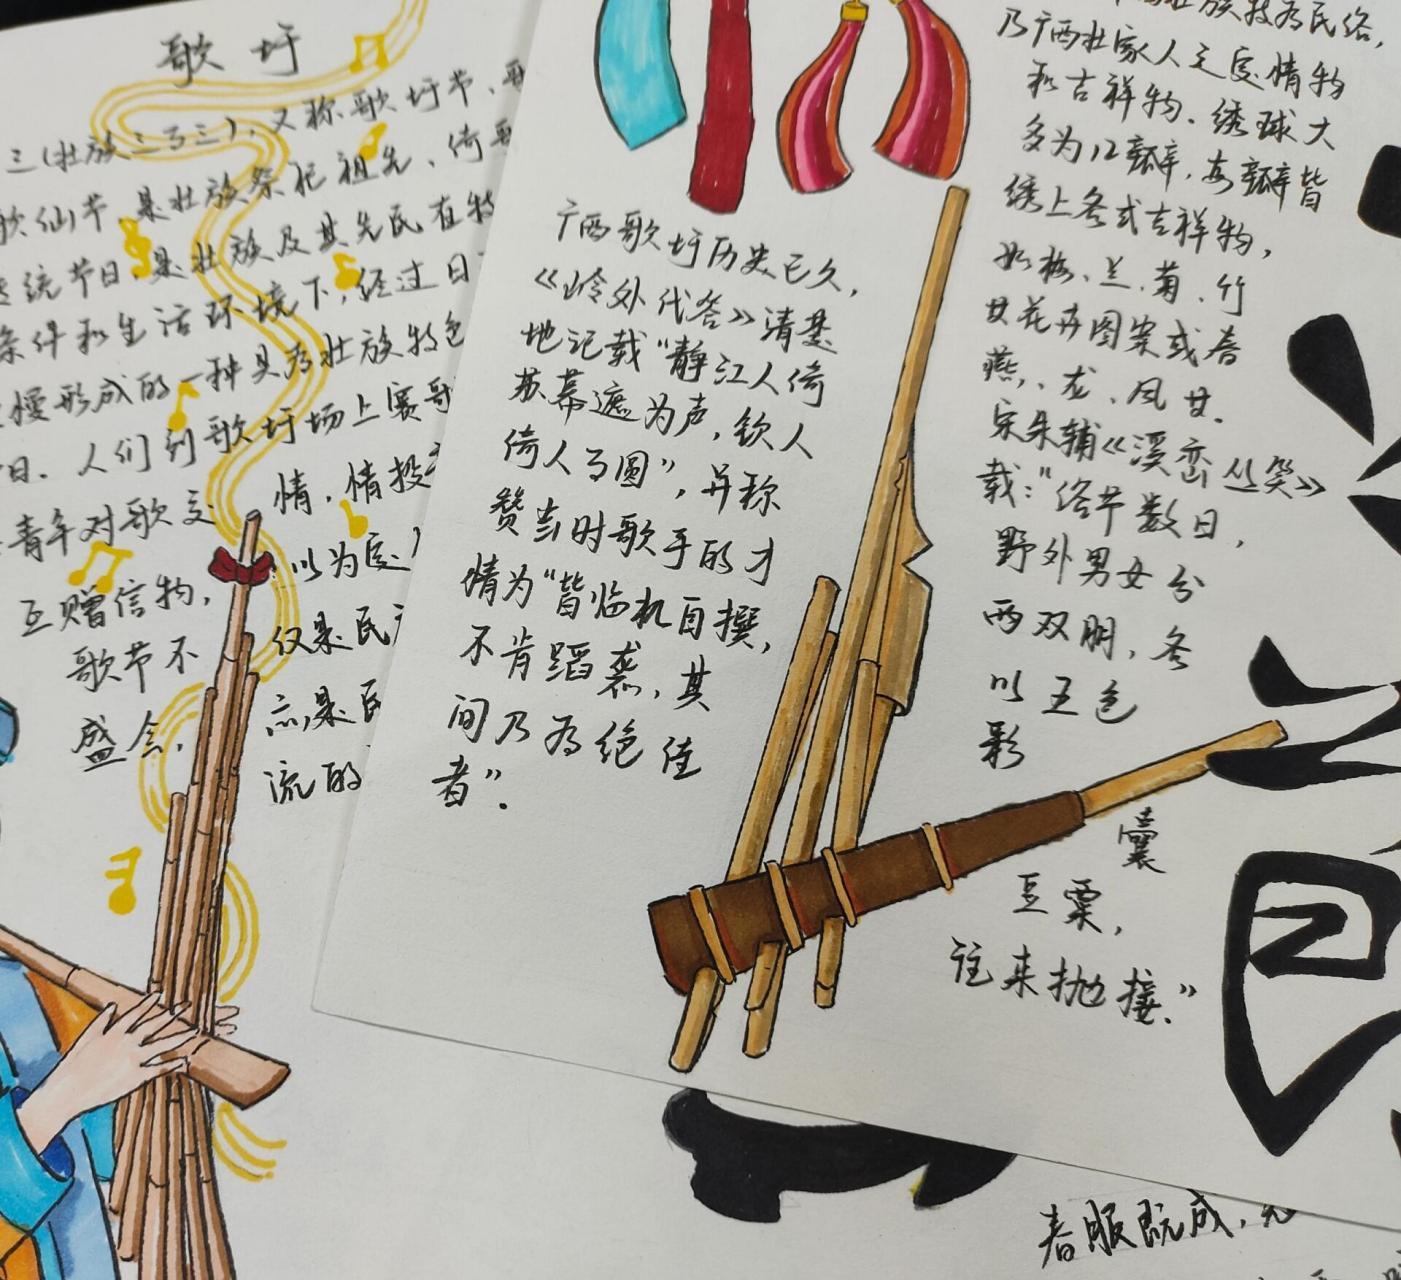 歌圩
三(壮族三月三),又称歌圩节、
歌仙节,是壮族祭祀祖先、倚歌
统节日,是壮族及其先民在特
条件和生活环境下,经过日
慢形成的一种具有壮族特色
日。人们到歌圩场上赛歌
青年对歌交
情,情投
互赠信物,
以为定
歌节不
仅是民
盛会,
亦是民
流的
广西歌圩历史已久,
《岭外代答》清楚
地记载“静江人倚
苏幕遮为声,钦人
倚人月圆”,并称
赞当时歌手的才
情为“皆临机自撰,
不肯蹈袭,其
间乃有绝佳
者”.
壮族技为民络,
乃广西壮家人之定情物
和吉祥物.绣球大
多为12瓣,每瓣皆
绣上各式吉祥物,
如梅、兰、菊、竹
廿花卉图案或春
燕、龙、凤廿.
宋朱辅《溪峦丛笑》
载:“洛节数日,
野外男女分
两双朋,各
以五色
彩
囊
豆粟,
往来抛接.”
春服既成,